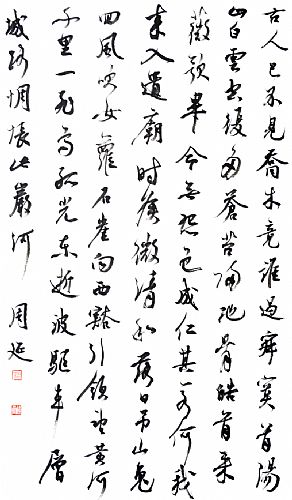 古人已不見喬木竟誰過寂寞首陽
山白雲空復多蒼苔歸地骨皓首采
薇歌畢命無怨色成仁其若何我
來入遺廟時候微清和落日吊山鬼
回風吹女蘿石崖向西豁引領望黃河
千里一飛鳥孤光東逝波驅車層
城路惆悵此巖阿 周延